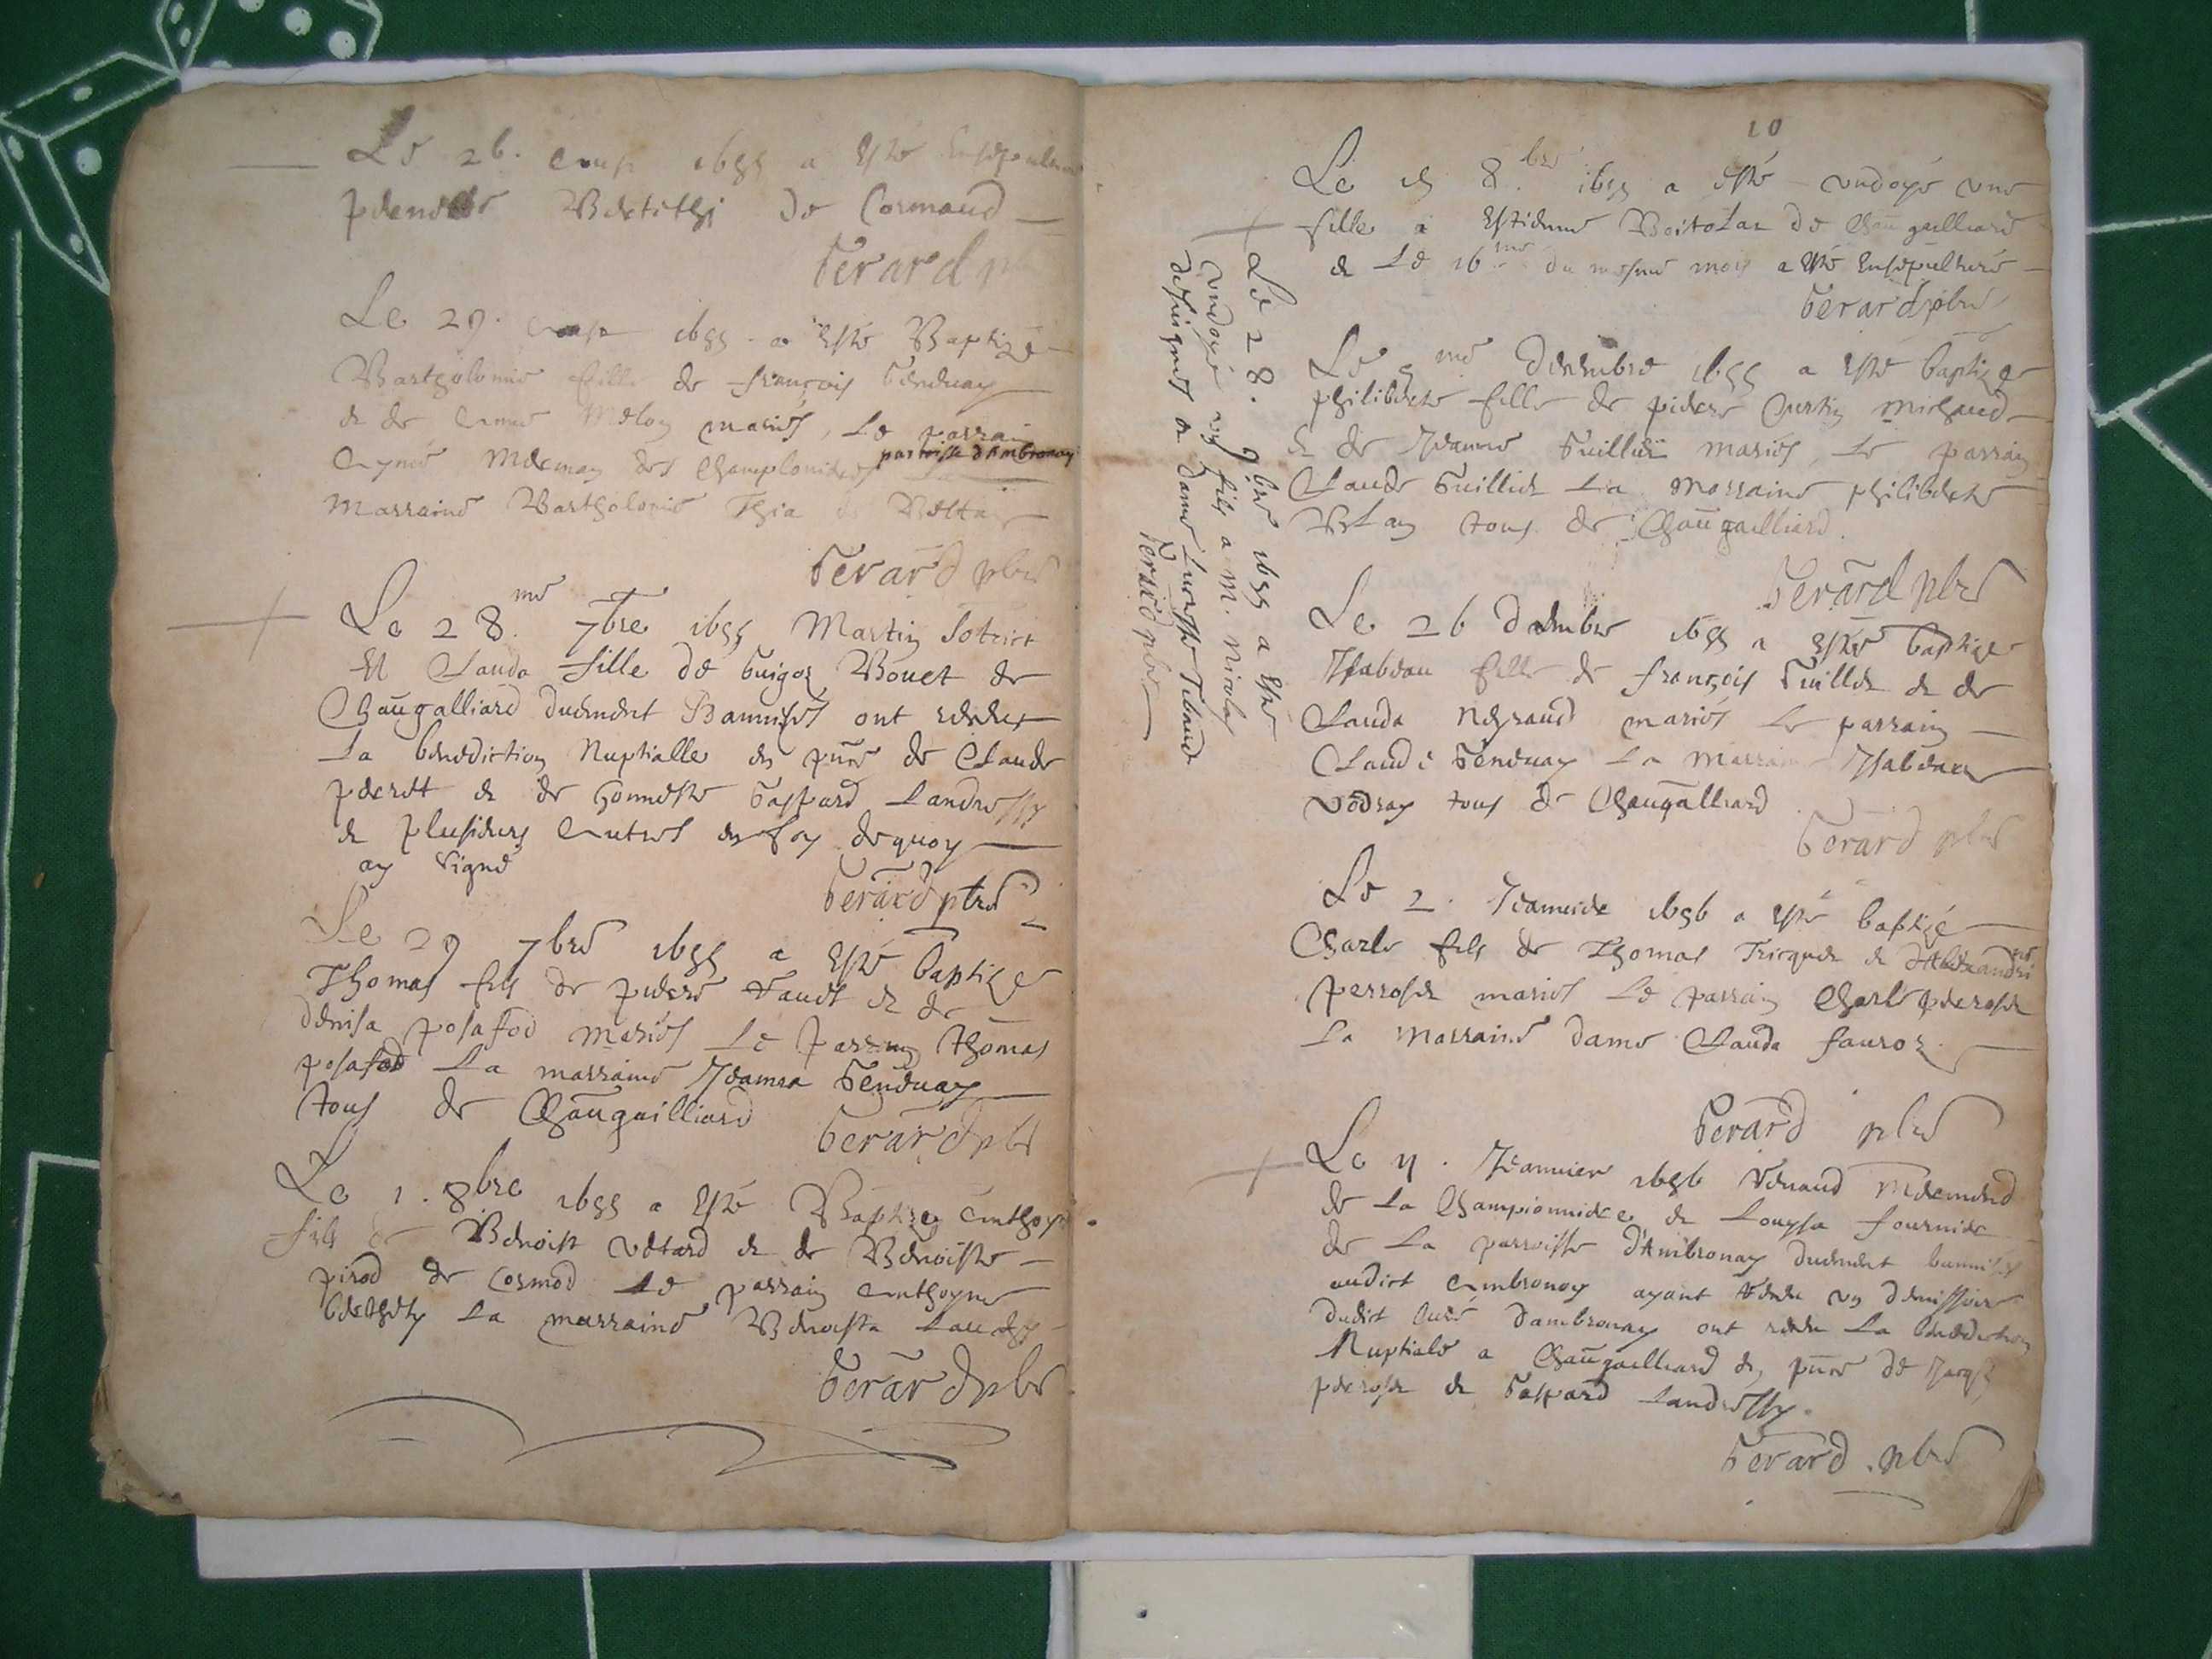 Le 26. aoust 1655 a esté ensepulturé
pernette Bertethi de Cormaud
Gerard pbre
Le 29. aoust 1655 a esté Baptizé
Bartholomie fille de françois Genevay
et de Anne mariés, Le parrain
Aymé Mermey des Championieres parroisse dAmbronay La
marraine Bartholomie Thia de Bettan
Gerard pbre
Le 28.me 7bre 1655 Martin
et Clauda fille de Guigoz Bouet de
Chaũgalliard duement Bannises ont receu
La benediction Nuptialle en pñce de Claude
peret et de honneste Gaspard Landressy
et plusieurs autres en foy dequoy
ay signé
Gerard pbre
Le 29 7bre 1655 a esté baptizé
Thomas fils de pierre et de
denisa posafod mariés Le parrain thomas
posafod La marraine Jeanna Genevay
tous de Chaũgailliard
Gerard pbre
Le 1. 8bre 1655 a esté Baptizé anthoyne
fils de Benoist vetard et de Benoiste
pirod de Cormod Le parrain anthoyne
berthety La marraine Benoista
Gerard pbre
10
Le 15 8.bre 1655 a esté undoyé une
fille a Estienne de Chaũgailliard
et Le 16me du mesme mois a esté ensepulturé
Gerard pbre
Le 28. 9bre 1655 a esté
undoyé un fils a M. nicolas
et dame Lucresse
Gerard pbre
Le 5me decembre 1655 a esté baptizé
philiberte fille de pierre Curtin Michaud
et de Jeanne Guillier mariés, Le parrain
Claude Guillier La marraine philiberte
tous de Chaũgailliard.
Gerard pbre
Le 26 decembre 1655 a esté baptizé
Isabeau fille de françois Guillier et de
Clauda Neyraud mariés Le parrain
Claude Genevay La marraine Isabeau
tous de Chaũgalliard
Gerard pbre
Le 2. Jeanvier 1656 a esté baptizé
Charle fils de Thomas Tricquet et dAlexandrine
perroset mariés Le parrain Charle peroset
La marraine dame Clauda fauroz
Gerard pbre
Le 11. Jeanvier 1656 Mermend
de La Championniere et Louysa fournier
de La parroisse d'Ambronay duement bannises
audict Ambronay ayant un demissoire
dudict Curé dambronay ont receu La benediction
Nuptiale a Chaũgailliard en pñce de
peroset et Gaspard Landressy.
Gerard. pbre